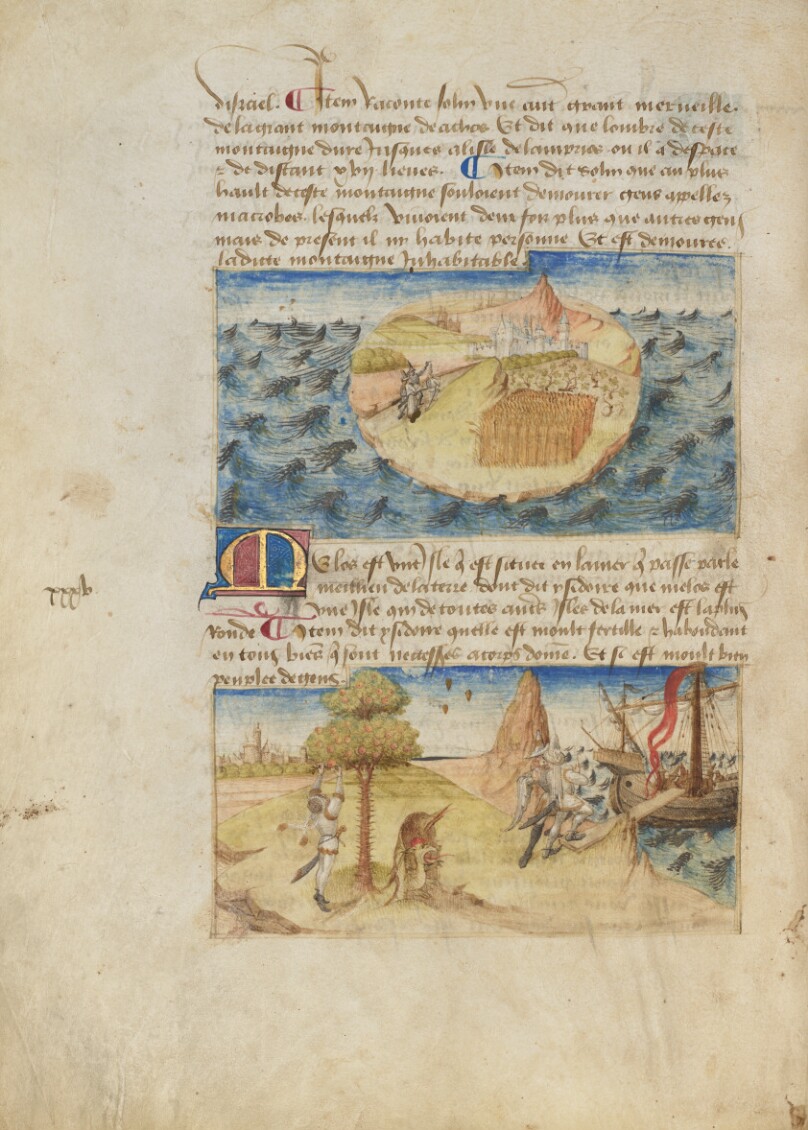 disrael. Item Raconte solin une aut grant merveille.
de la grant montaigne de achos Et dit que lombre de ceste
montaigne dure Jusques a lisle de ou il a despace
de distant xvij lieues. Item dit solin que au plus
hault de ceste montaigne souloient demourer gens appellez
macrobos. lesquelz vivoient deux fois plus que autres gens
mais de present il ny habite personne Et est demouree
ladicte montaigne Inhabitable.
Melos est une Isle q̃ est situee en la mer q̃ passe par le
meillieu de la terre dont dit ysidoire que melos est
xxxv
une Isle qui de toutes auts Isles de la mer est la plus
ronde Item dit ysidoire quelle est moult fertille & habondant
en tous biens q̃ sont a corps dome. Et si est moult bien
peuplee de gens.